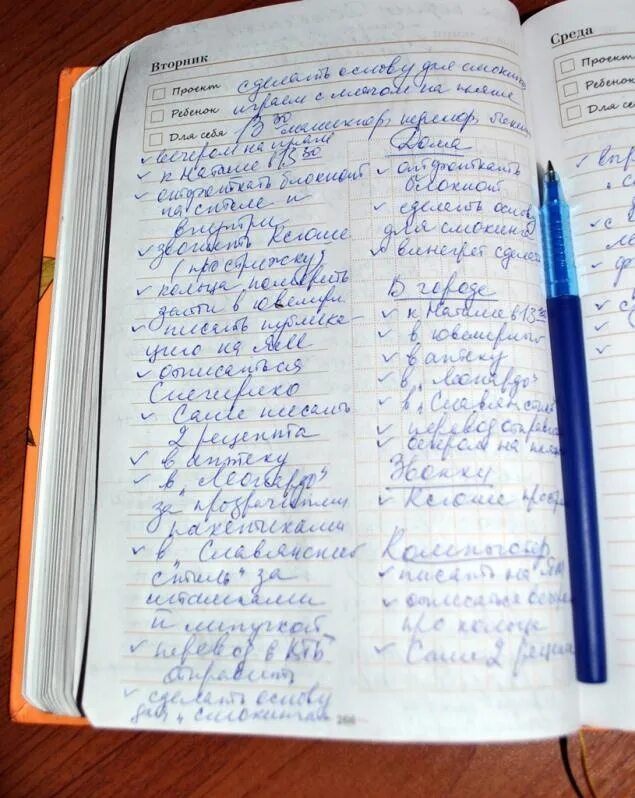 Вторник
Проект сделать основу для смокинга
Ребенок играем с мячом на пляже
Для себя 13 30
вечером на пляж
к Наташе в 13 30
отфоткать блокнот
на столе и
внутри
звонить Ксюше
(про стрижку)
кольца померить
зайти в ювелирн
писать публика
цию на ЯММ
отписаться
Саше писать
2 рецепта
в аптеку
в "Леонардо"
за прозрачными
пакетиками
в Славянский
стиль" за
штампами
и липучкой
перевод в ВТБ
отправить
сделать основу
для "смокинга"
166
Дома
отфоткать
блокнот
сделать основу
для смокинга
винегрет сделать
В городе
к Наташе в 13 30
в ювелирный
в аптеку
в "Леонардо"
в "Славян стиль
перевод отправи
вечером на пляж
Звонки
Ксюше про стри
Компьютер
писать на ЯМ
отписаться
про кольцо
Саше 2 рецепта
Среда
Проект
Ребенок
Для себя